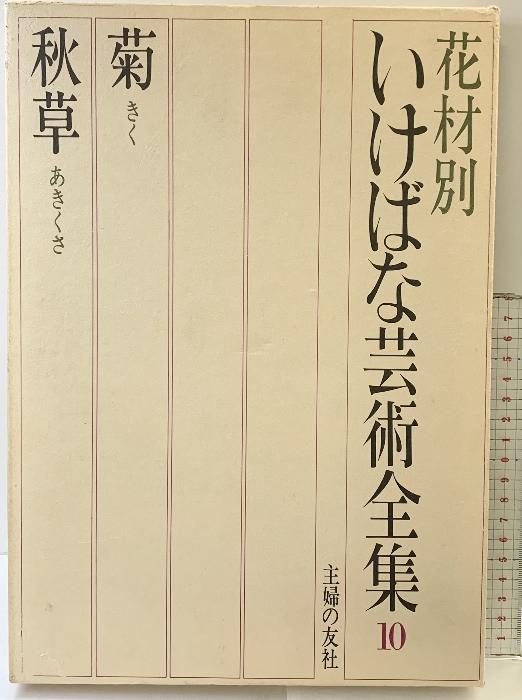 花材別
いけばな芸術全集10
主婦の友社
菊
きく
秋草
あきくさ